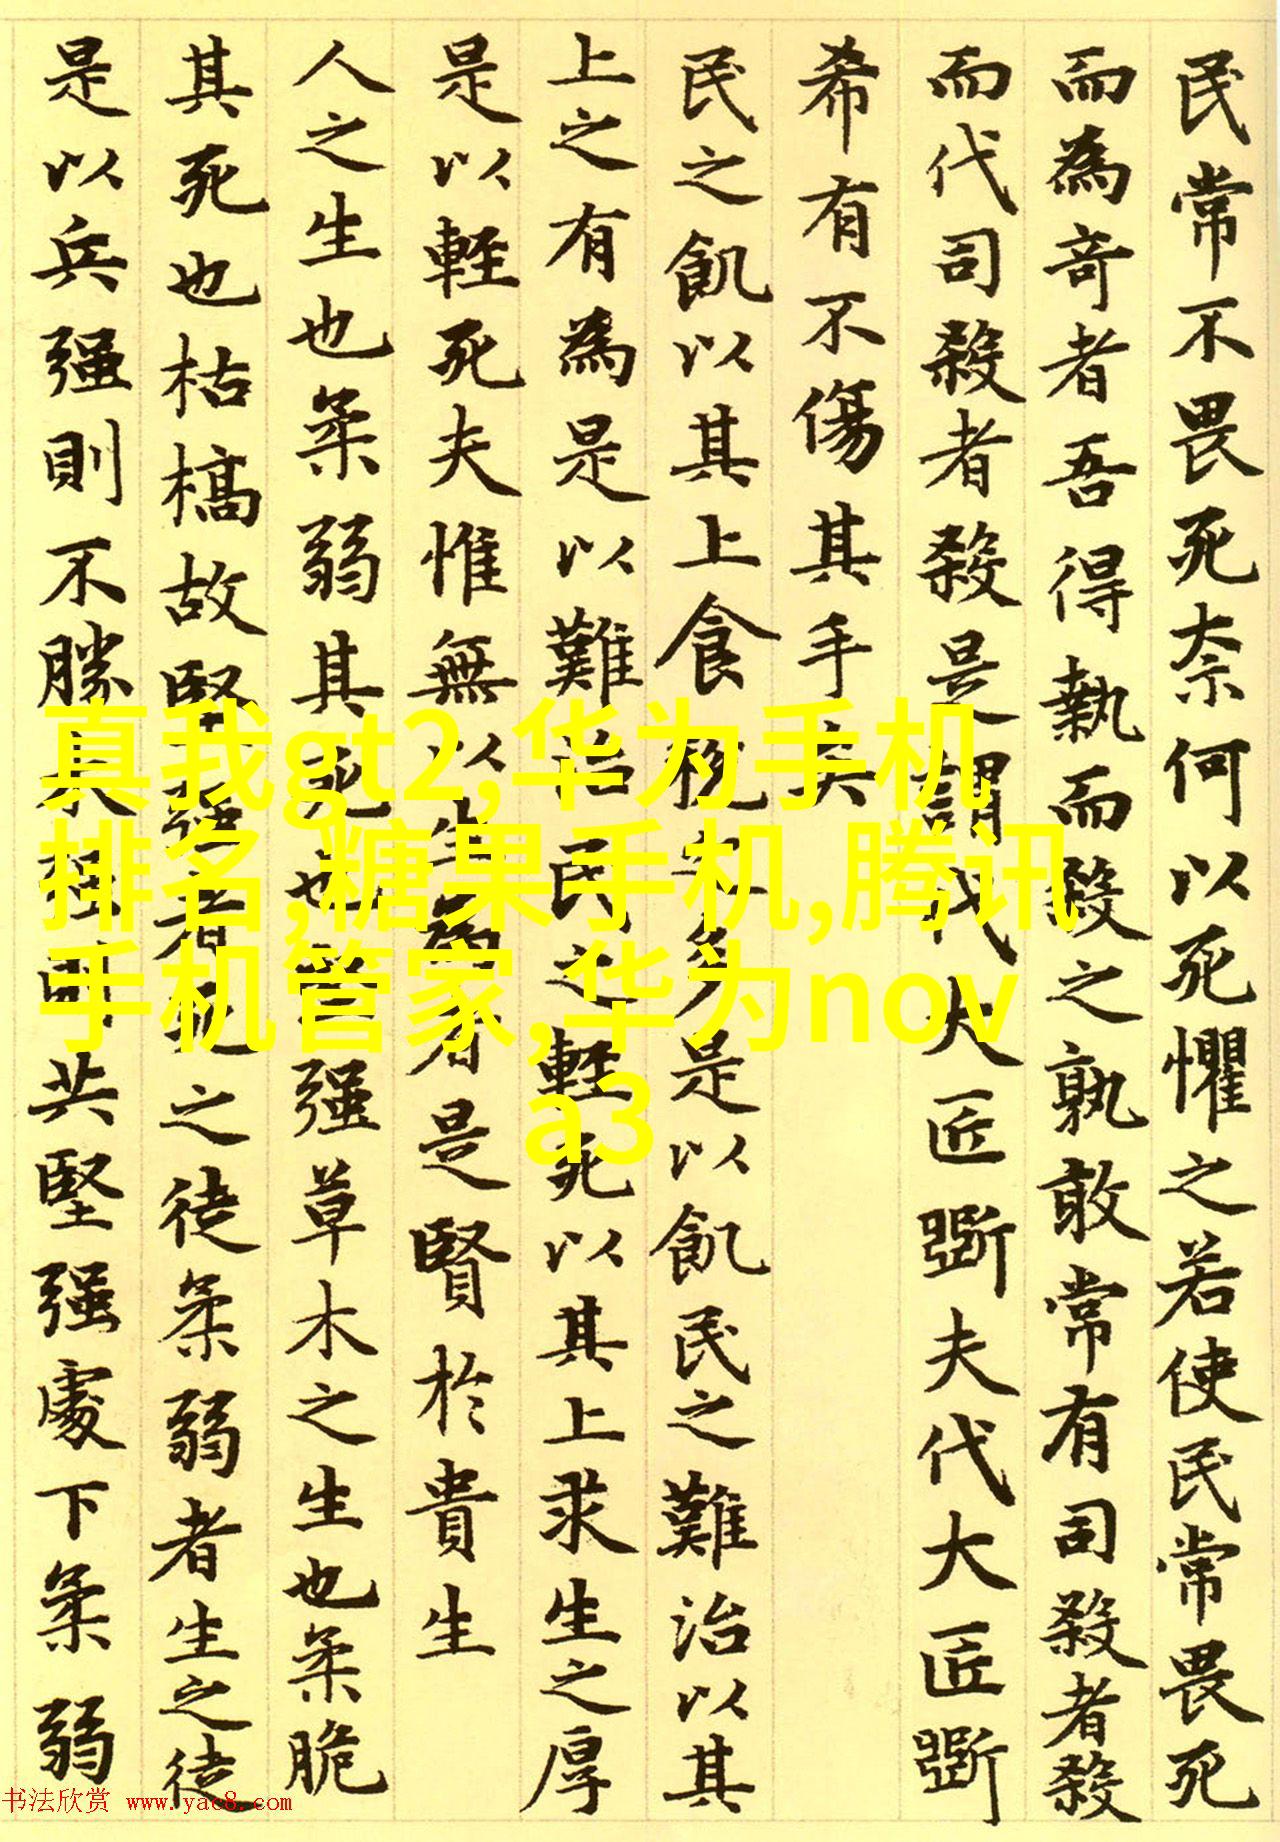 民常不畏死奈何以死懼之若使民常畏死
而為奇者吾得執而殺之孰敢常有司殺者殺
而代司殺者殺是謂代大匠斲夫代大匠斲
希有不傷其手矣
民之飢以其上食稅之多是以飢民之難治以其
上之有為是以難治民之輕死以其上求生之厚
是以輕死夫惟無以生為者是賢於貴生
人之生也柔弱其死也堅强草木之生也柔脆
其死也枯槁故堅强者死之徒柔弱者生之徒
是以兵强則不勝木强則共堅强處下柔弱
真我gt2,华为手机
排名,糖果手机,腾讯
手机管家,华为nov
a3
书法欣赏 www.yac8.com